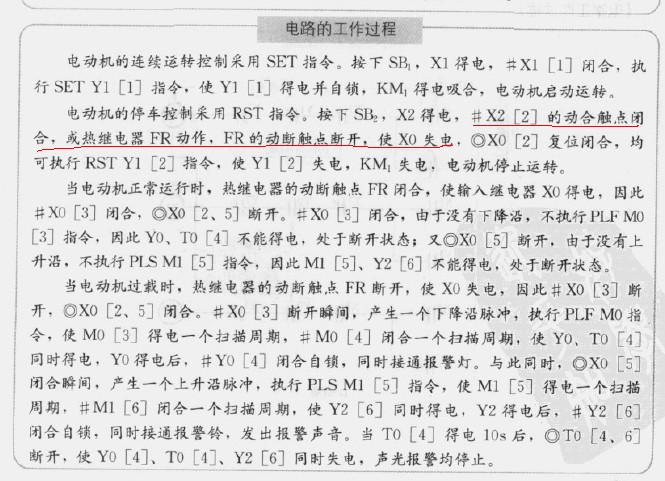 电路的工作过程
电动机的连续运转控制采用 SET 指令。按下 SB₁，X1 得电，♯X1［1］闭合，执
行 SET Y1［1］指令，使 Y1［1］得电并自锁，KM₁ 得电吸合，电动机启动运转。
电动机的停车控制采用 RST 指令。按下 SB₂，X2 得电，♯X2［2］的动合触点闭
合，或热继电器 FR 动作，FR 的动断触点断开，使 X0 失电，◎X0［2］复位闭合，均
可执行 RST Y1［2］指令，使 Y1［2］失电，KM₁ 失电，电动机停止运转。
当电动机正常运行时，热继电器的动断触点 FR 闭合，使输入继电器 X0 得电，因此
♯X0［3］闭合，◎X0［2、5］断开。♯X0［3］闭合，由于没有下降沿，不执行 PLF M0
［3］指令，因此 Y0、T0［4］不能得电，处于断开状态；又◎X0［5］断开，由于没有上
升沿，不执行 PLS M1［5］指令，因此 M1［5］、Y2［6］不能得电，处于断开状态。
当电动机过载时，热继电器的动断触点 FR 断开，使 X0 失电，因此♯X0［3］断
开，◎X0［2、5］闭合。♯X0［3］断开瞬间，产生一个下降沿脉冲，执行 PLF M0 指
令，使 M0［3］得电一个扫描周期，♯M0［4］闭合一个扫描周期，使 Y0、T0［4］
同时得电，Y0 得电后，♯Y0［4］闭合自锁，同时接通报警灯。与此同时，◎X0［5］
闭合瞬间，产生一个上升沿脉冲，执行 PLS M1［5］指令，使 M1［5］得电一个扫描
周期，♯M1［6］闭合一个扫描周期，使 Y2［6］同时得电，Y2 得电后，♯Y2［6］
闭合自锁，同时接通报警铃，发出报警声音。当 T0［4］得电 10s 后，◎T0［4、6］
断开，使 Y0［4］、T0［4］、Y2［6］同时失电，声光报警均停止。